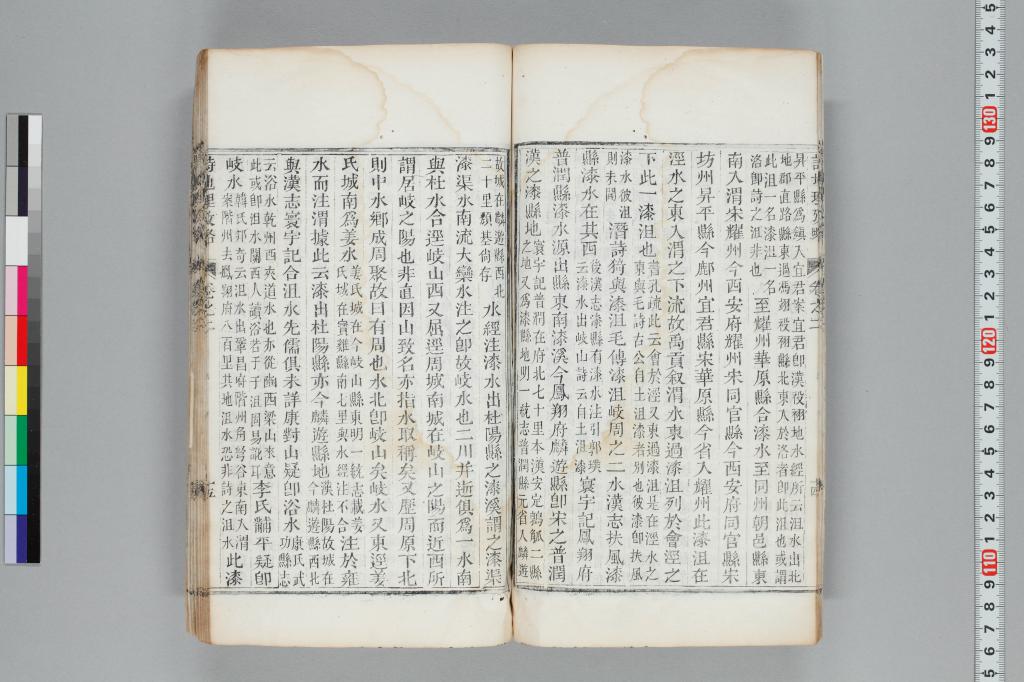 昇平縣爲縣入宜君案宜君卽漢祋祤地水經所云沮水出北
地郡直路縣東過馮翊祋祤縣北東入於洛者卽此沮也或謂
此沮一名漆沮一名
洛卽詩之沮非也
至耀州華原縣合漆水至同州朝邑縣東
南入渭宋耀州今西安府耀州宋同官縣今西安府同官縣宋
坊州昇平縣今鄜州宜君縣宋華原縣今省入耀州此漆沮在
涇水之東入渭之下流故禹貢叙渭水東過漆沮列於會涇之
下此一漆沮也
書孔疏此云會於涇又東過漆沮是在涇水之
東與毛詩古公自土沮漆者別也彼漆卽扶風
漆水彼沮
則未聞
潛詩猗與漆沮毛傳漆沮岐周之二水漢志扶風漆
縣漆水在其西
後漢志漆縣有漆水注引郭璞
云漆水出岐山詩云自土沮漆
寰宇記鳳翔府
普潤縣漆水源出縣東南漆溪今鳳翔府麟遊縣卽宋之普潤
漢之漆縣地
寰宇記普潤在府北七十里本漢安定鶉觚二縣
之地又爲漆縣地明一統志普潤縣元省入麟遊
故城在麟遊縣西北
二十里頹基尙存
水經注漆水出杜陽縣之漆溪謂之漆渠
漆渠水南流大欒水注之卽故岐水也二川并逝俱爲一水南
與杜水合逕岐山西又屈逕周城南城在岐山之陽而近西所
謂居岐之陽也非直因山致名亦指水取稱矣又歷周原下北
則中水鄉成周聚故曰有周也水北卽岐山矣岐水又東逕姜
氏城南爲姜水
姜氏城在今岐山縣東明一統志載姜
氏城在寶雞縣南七里與水經注不合
注於雍
水而注渭據此云漆出杜陽縣亦今麟遊縣地
今麟遊縣西北
漢杜陽故城在
與漢志寰宇記合沮水先儒俱未詳康對山疑卽浴水
康氏武
功縣志
云浴水乾州西夾道水也亦從豳西梁山來意
此或卽沮水關西人讀浴若于于沮固易訛耳
李氏黼平疑卽
岐水
韓氏邦奇云沮水出鞏昌府階州角弩谷東南入渭
案階州去鳳翔府八百里其地沮水恐非詩之沮水
此漆
詩地理攷略
卷之二
十五